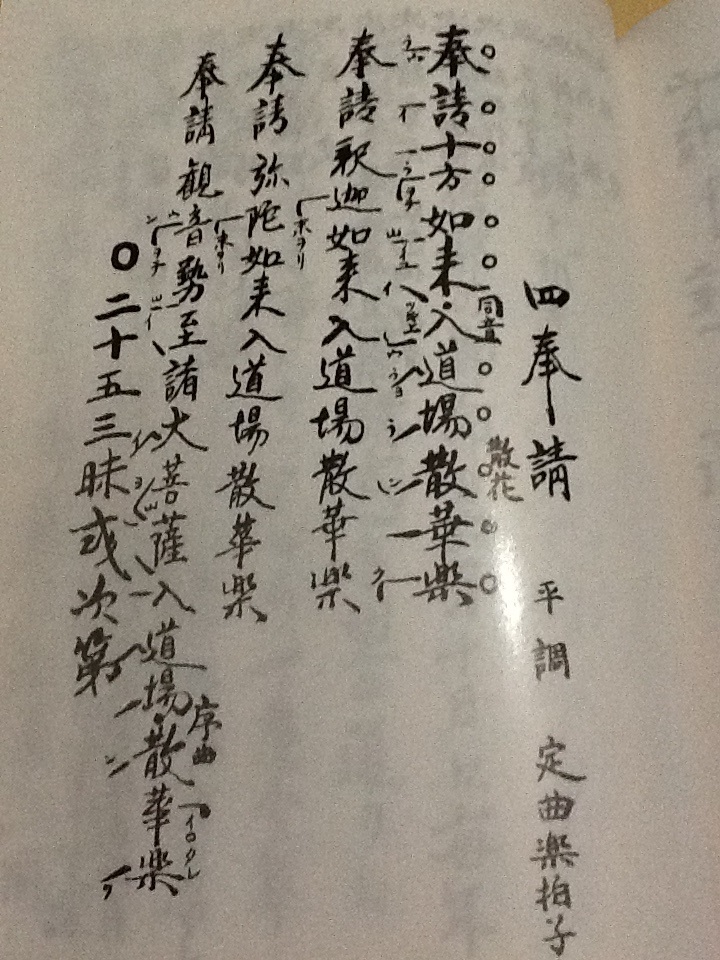 四奉請 平調 定曲楽拍子
奉請十方如来入道場散華楽
同音
散花
奉請釈迦如来入道場散華楽
奉請弥陀如来入道場散華楽
奉請観音勢至諸大菩薩入道場散華楽
序曲
二十五三昧式次第